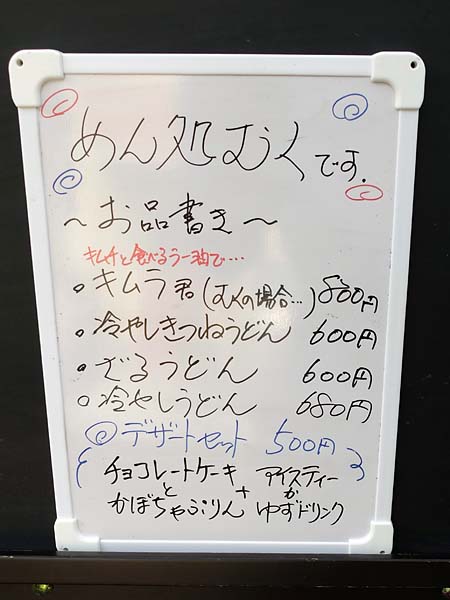 めん処むくです.
～お品書き～
キムチと食べるラー油で…
○キムラ君(むくの場合…)800円
○冷やしきつねうどん 600円
○ざるうどん 600円
○冷やしうどん 680円
◎デザートセット 500円
チョコレートケーキ アイスティー
と + か
かぼちゃぷりん ゆずドリンク